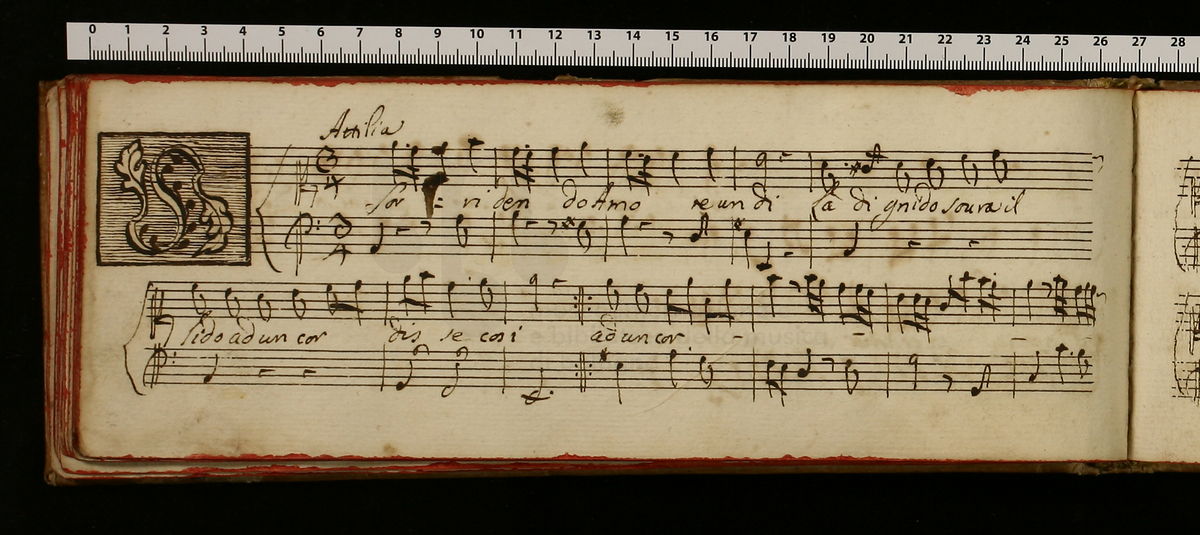 0 1 2 3 4 5 6 7 8 9 10 11 12 13 14 15 16 17 18 19 20 21 22 23 24 25 26 27 28
Attilia
3 4
Sor ri den do Amo re un di la di gnido soura il
3 4
lido ad un cor dis se cosi ad un cor